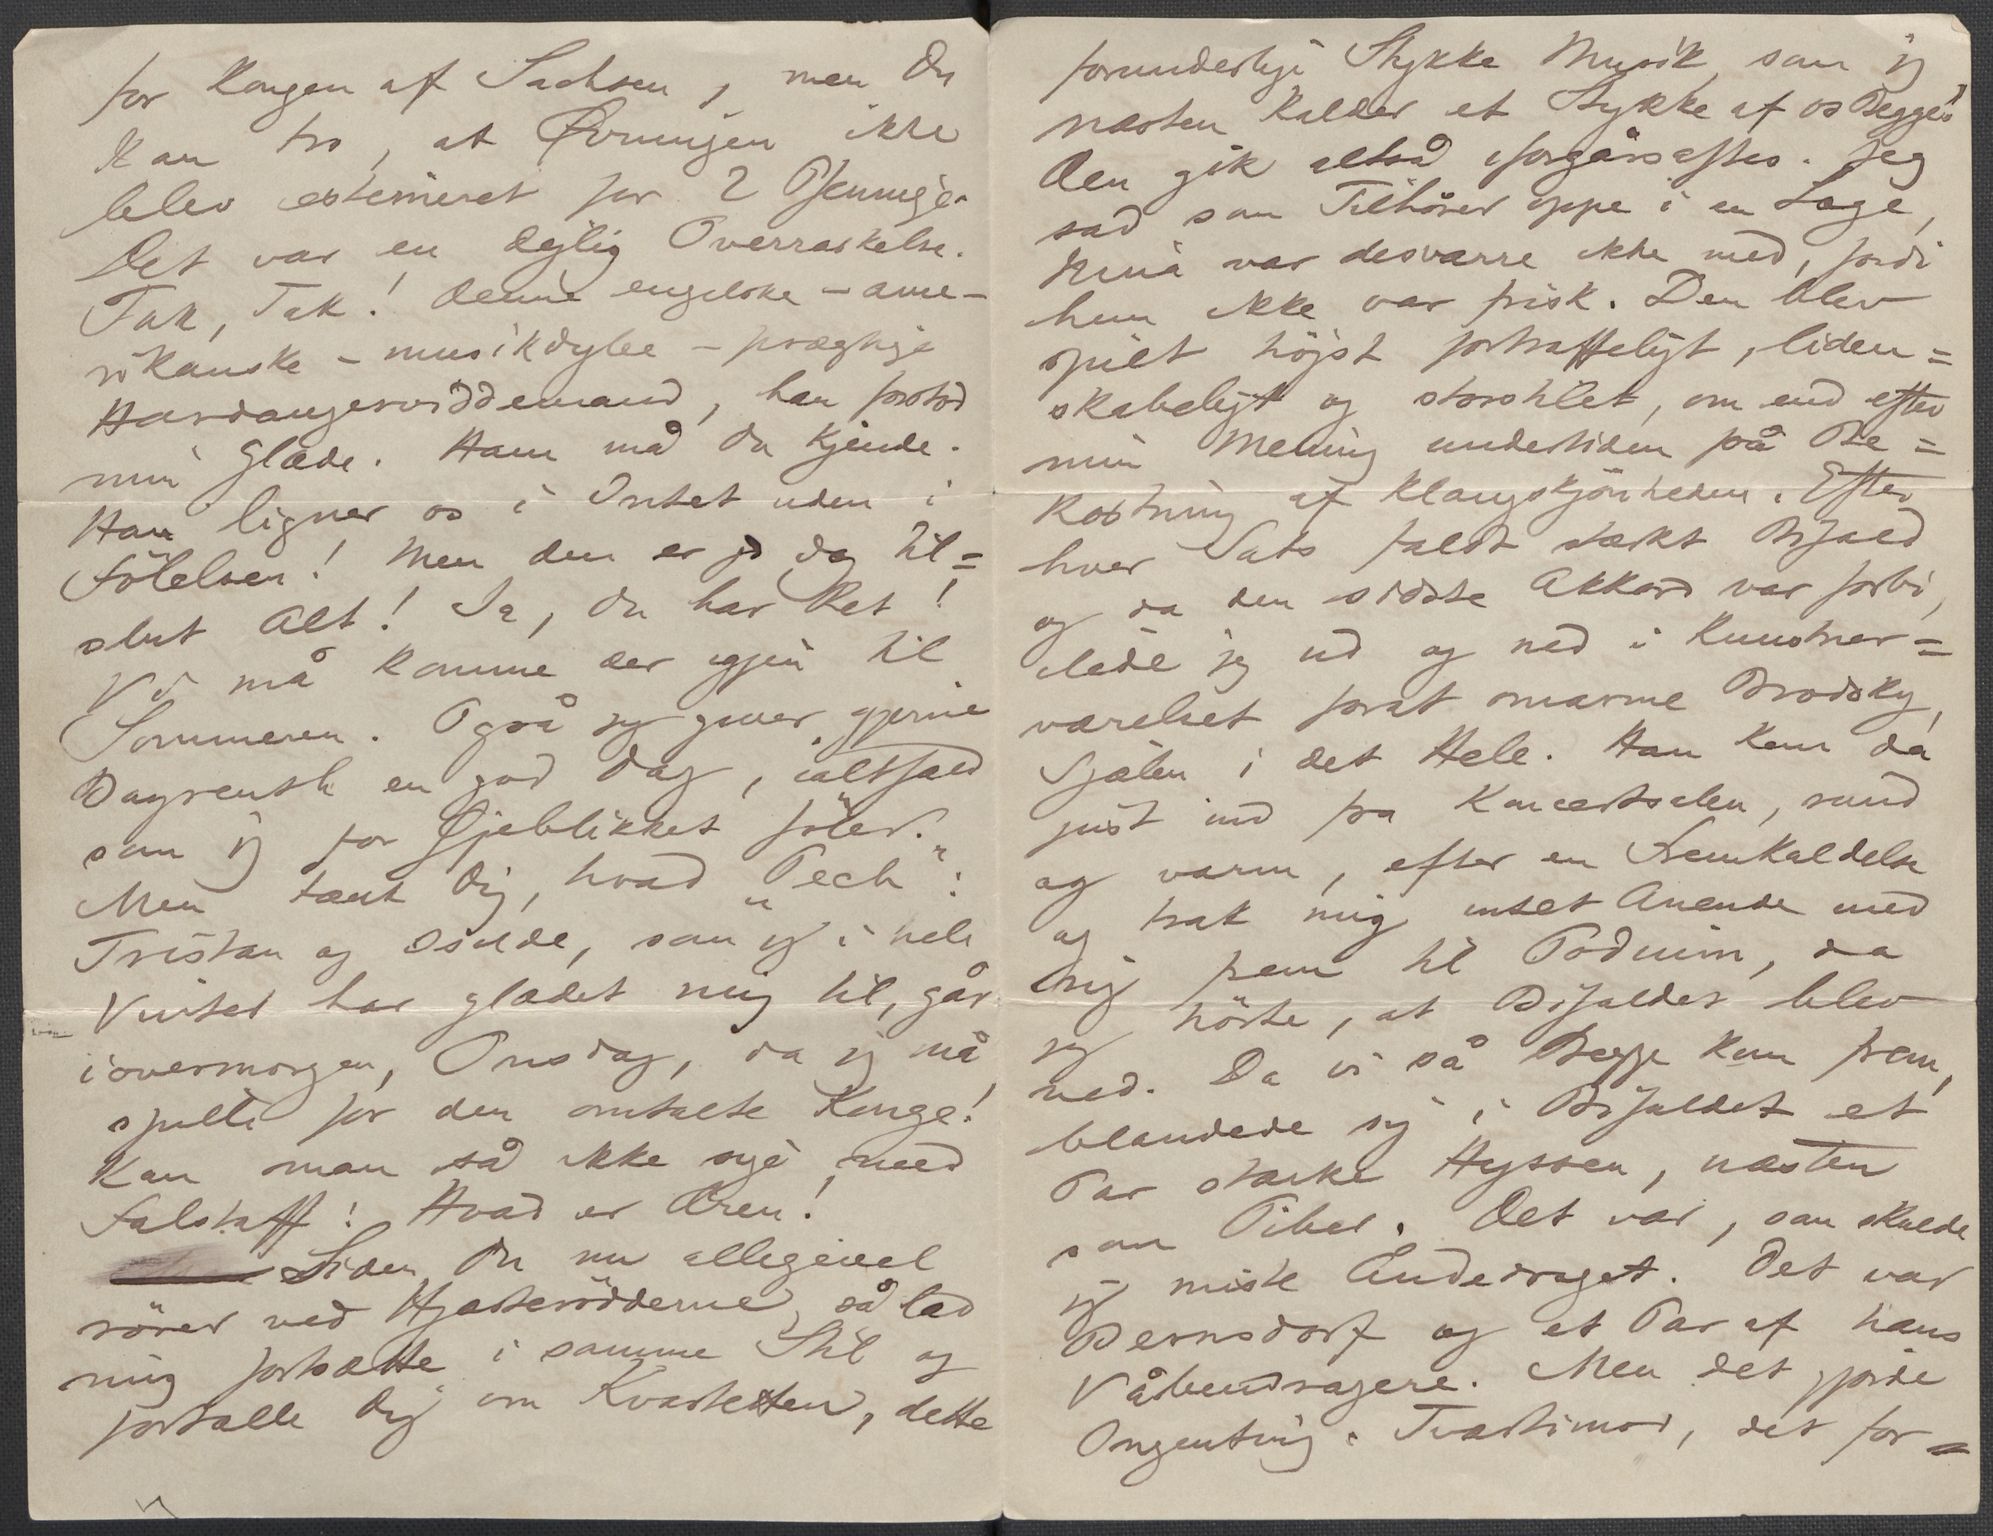 for Kongen af Sachsen, men Du
kan tro, at Øvningen ikke
blev estimeret for 2 Pfennige.
Det var en dejlig Overraskelse.
Tak, Tak! Denne engelske – ame-
rikanske – musikdybe – prægtige
Hardangerviddemand, han forstod
min Glæde. Ham må Du kjende.
Han ligner os i Intet uden i
Følelsen! Men den er jo dog til=
slut Alt! Ja, Du har Ret!
Vi må komme der igjen til
Sommeren. Også jeg giver gjerne
Dagrenten en god Dag, ialtfald
som jeg for Øjeblikket føler.
Men tænk Dig, hvad "Pech":
Tristan og Isolde, som jeg i hele
Vinter har glædet mig til, går
iovermorgen, Onsdag, da jeg må
spille for den omtalte Konge!
Kan man så ikke sige med
Falstaff: Hvad er Æren!
Siden Du nu alligevel
rører ved Hjerterødderne, så lad
mig fortsætte i samme Stil og
fortælle Dig om Kvartetten, dette
forunderlige Stykke Musik, som jeg
næsten kalder et Stykke af os Begge!
Den gik altså iforgårsaftes. Jeg
sad som Tilhører oppe i en Loge,
Nina var desværre ikke med, fordi
hun ikke var frisk. Den blev
spilt højst fortræffeligt, liden=
skabeligt og storstilet, om end efter
min Mening undertiden på Be=
kostning af Klangskjønheden. Efter
hver Sats faldt stærkt Bifald
og da den sidste Akkord var forbi,
ilede jeg ud og ned i Kunstner=
værelset forat omarme Brodsky,
Sjælen i det Hele. Han kom da
just ind fra Koncertsalen, rund
og varm, efter en Fremkaldelse
og trak mig intet Anende med
sig frem til Podium, da
jeg hørte, at Bifaldet blev
ved. Da vi så Begge kom frem,
blandede sig i Bifaldet et
Par stærke Hyssen, næsten
som Piber. Det var, som skulde
jeg miste Åndedraget. Det var
Bernsdorf og et Par af hans
Våbendragere. Men det gjorde
Ingenting. Tvertimod, det for=